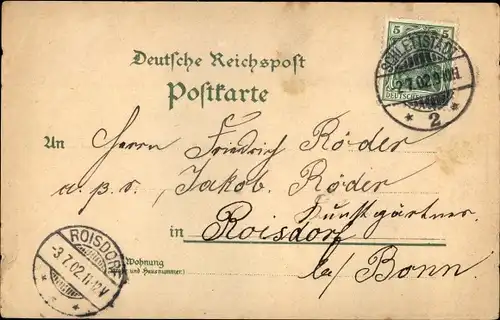 5
SCHLETTSTADT
2.7.02.9-10H
* 2 *
Deutsche Reichspost
Postkarte
An Herrn Friedrich Röder
a. p. s. Jakob Röder
Kunstgärtner
in Roisdorf
b/a Bonn.
Wohnung
und Hausnummer)
ROISDORF
-3.7.02.11-12V